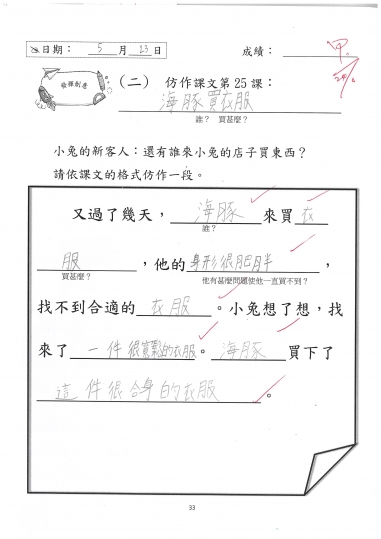 日期： 5 月 23 日 成績： 甲
發揮創意 （二） 仿作課文第25課：
海豚買衣服
誰？ 買甚麼？
小兔的新客人：還有誰來小兔的店子買東西？
請依課文的格式仿作一段。
又過了幾天， 海豚 來買 衣
誰？
服 ，他的 身形很肥胖 ，
買甚麼？ 他有甚麼問題使他一直買不到？
找不到合適的 衣服 。小兔想了想，找
來了 一件很寬鬆的衣服 。 海豚 買下了
這件很合身的衣服 。
33